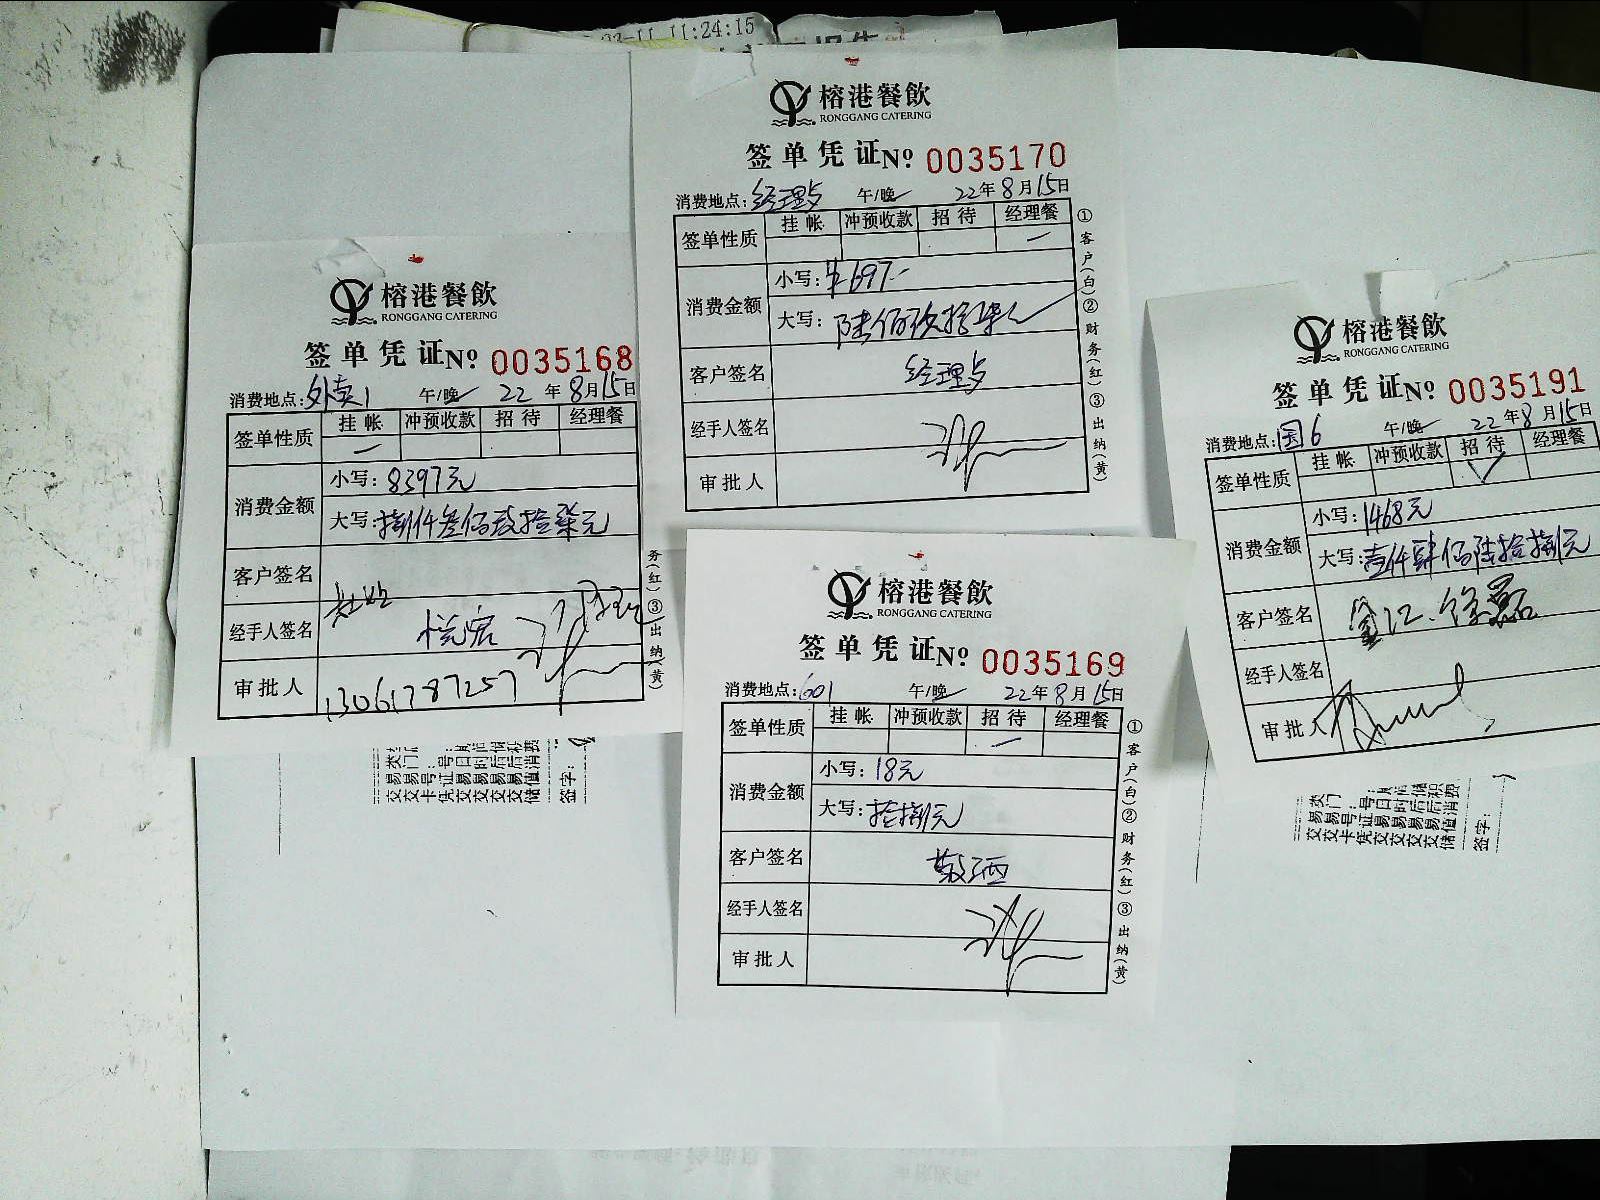 11:24:15
榕港餐飲
RONGGANG CATERING
签单凭证No 0035170
消费地点:经理与 午/晚 22年8月15日
签单性质 挂帐 冲预收款 招待 经理餐
消费金额
小写:¥697.-
大写:陆佰玖拾柒元
客户签名 经理与
经手人签名
审批人
①客户(白)②财务(红)③出纳(黄)
榕港餐飲
RONGGANG CATERING
签单凭证No 0035168
消费地点:外卖1 午/晚 22年8月15日
签单性质 挂帐 冲预收款 招待 经理餐
消费金额
小写:8397元
大写:捌仟叁佰玖拾柒元
客户签名
经手人签名
审批人 13061787257
务(红)③出纳(黄)
榕港餐飲
RONGGANG CATERING
签单凭证No 0035191
消费地点:园6 午/晚 22年8月15日
签单性质 挂帐 冲预收款 招待 经理餐
消费金额
小写:1468元
大写:壹仟肆佰陆拾捌元
客户签名
经手人签名
审批人
榕港餐飲
RONGGANG CATERING
签单凭证No 0035169
消费地点:601 午/晚 22年8月15日
签单性质 挂帐 冲预收款 招待 经理餐
消费金额
小写:18元
大写:拾捌元
客户签名 敬酒
经手人签名
审批人
①客户(白)②财务(红)③出纳(黄)
交易类
交易门
卡号:
凭证号:
交易日
交易时
交易后储
交易后积
储值消费
签字:
交易类
交易门
卡号:
凭证号:
交易日
交易时
交易后储
交易后积
储值消费
签字: